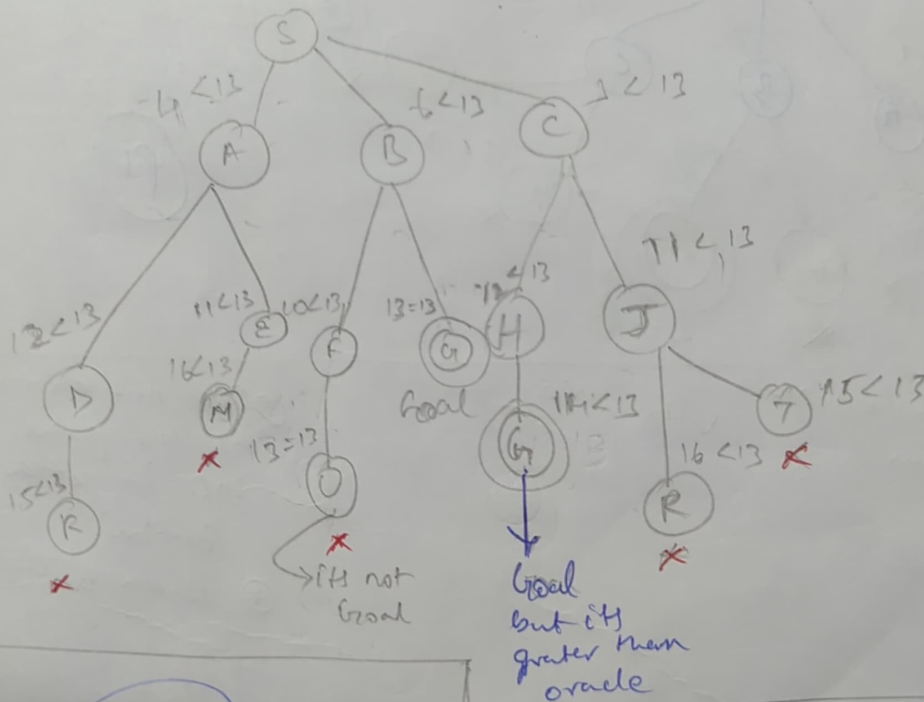 S
4 <13
6 <13
3 < 13
A
B
C
12<13
11<13
10<13
13=13
12 <13
11 < 13
D
E
F
G
H
J
16<13
Goal
14<13
15<13
M
13=13
G
7
15<13
16 <13
R
O
R
its not
Goal
Goal
but its
greater than
oracle